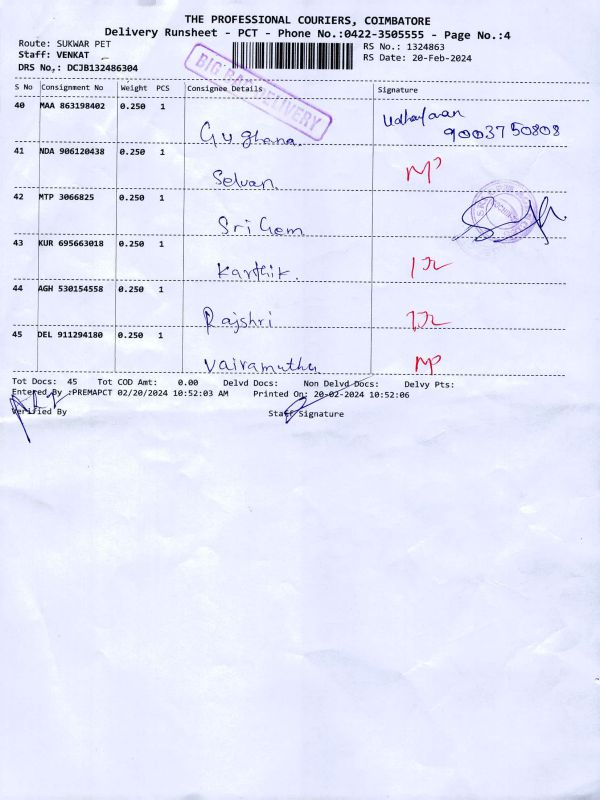 THE PROFESSIONAL COURIERS, COIMBATORE
Delivery Runsheet - PCT - Phone No.:0422-3505555 - Page No.:4
Route: SUKWAR PET
RS No.: 1324863
Staff: VENKAT
RS Date: 20-Feb-2024
DRS No.: DCJB132486304
BIG BAG DELIVERY
S No Consignment No Weight PCS Consignee Details Signature
40 MAA 863198402 0.250 1
Gughana. 9003750808
41 NDA 906120438 0.250 1
Selvan.
42 MTP 3066825 0.250 1
Sri Gem
43 KUR 695663018 0.250 1
Karthik.
44 AGH 530154558 0.250 1
Rajshri
45 DEL 911294180 0.250 1
Vairamuthu
Tot Docs: 45 Tot COD Amt: 0.00 Delvd Docs: Non Delvd Docs: Delvy Pts:
Entered By :PREMAPCT 02/20/2024 10:52:03 AM Printed On: 20-02-2024 10:52:06
Verified By Staff Signature